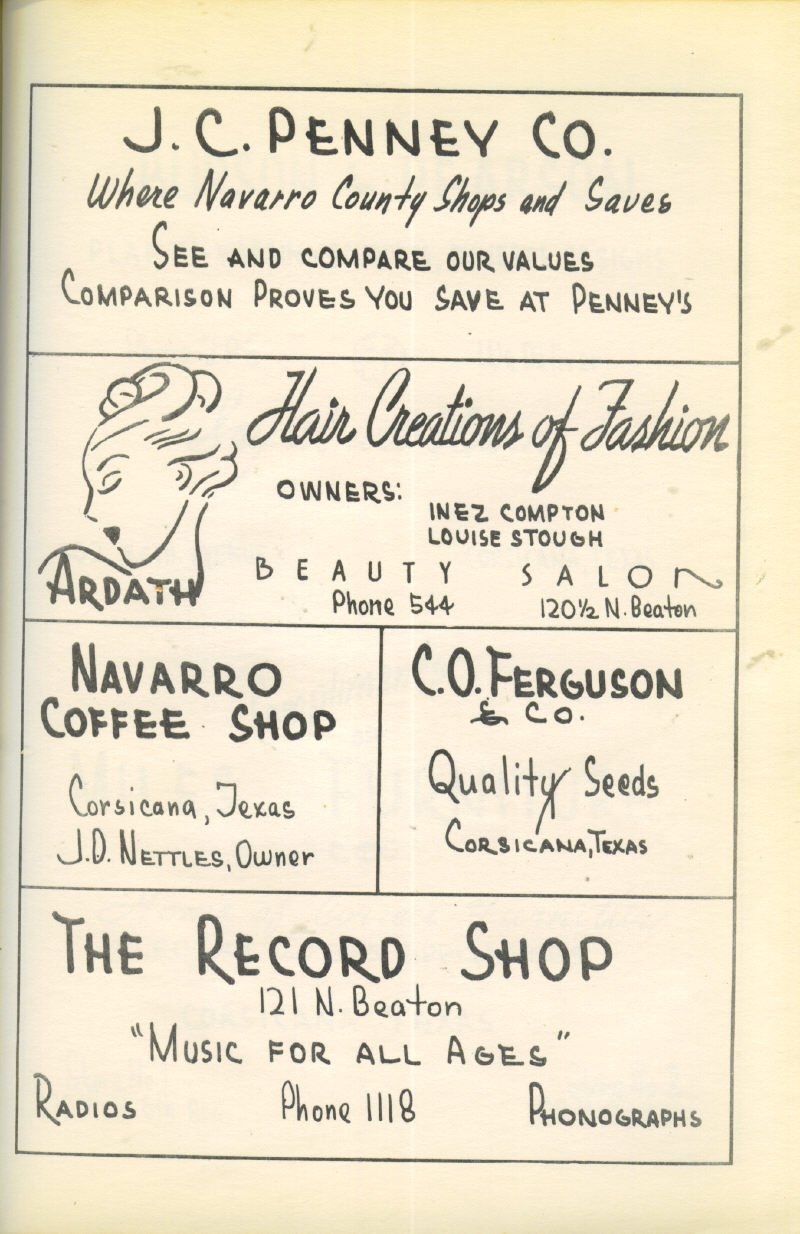 J. C. PENNEY CO.
Where Navarro County Shops and Saves
SEE AND COMPARE OUR VALUES
COMPARISON PROVES YOU SAVE AT PENNEY'S
Hair Creations of Fashion
OWNERS:
INEZ COMPTON
LOUISE STOUGH
ARDATH
BEAUTY SALON
Phone 544
120½ N. Beaton
NAVARRO
COFFEE SHOP
Corsicana, Texas
J.D. NETTLES, Owner
C.O. FERGUSON
& CO.
Quality Seeds
CORSICANA, TEXAS
THE RECORD SHOP
121 N. Beaton
"MUSIC FOR ALL AGES"
RADIOS Phone 1118 PHONOGRAPHS